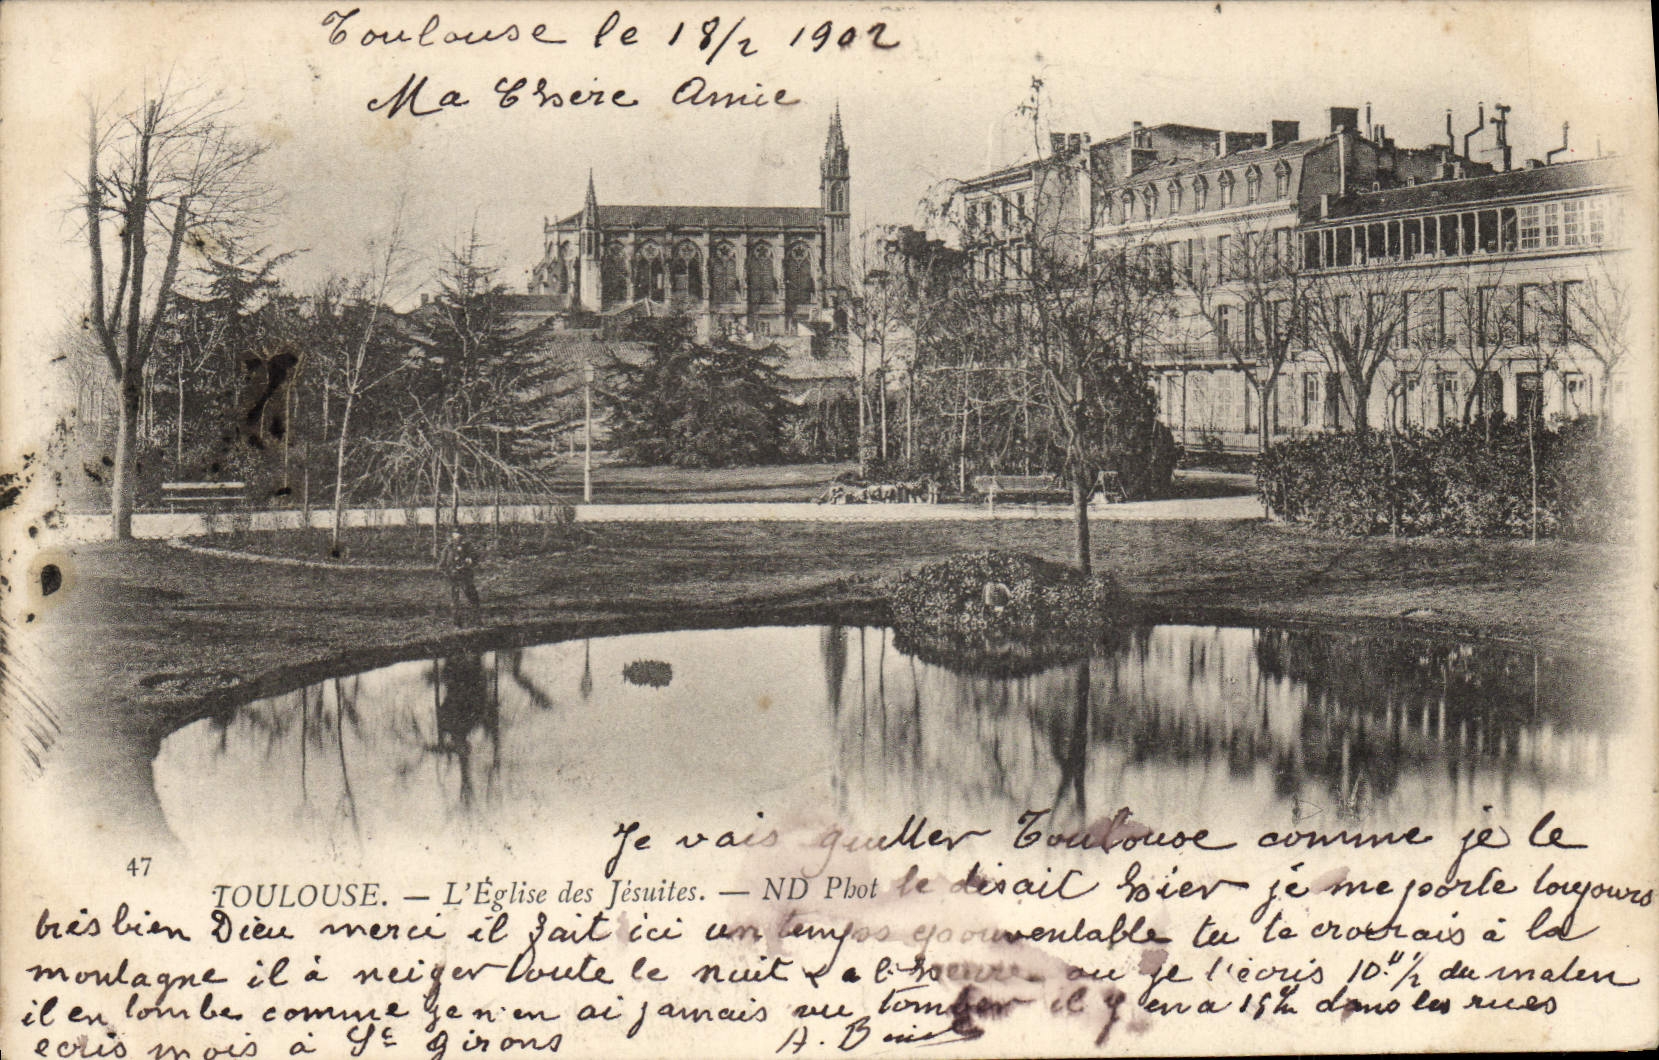 Toulouse le 18/2 1902
Ma Chere Amie
Je vais quitter Toulouse comme je le
47
TOULOUSE. — L'Église des Jésuites. — ND Phot
le disait hier je me porte toujours
très bien Dieu merci il fait ici un temps epouventable tu te croirais à la
montagne il à neiger toute le nuit & a l'heure ou je l'écris 10.h 1/2 du maten
il en tombe comme je n'en ai jamais vu tomber il y en a 15cm dans les rues
ecris mois à St Girons A.